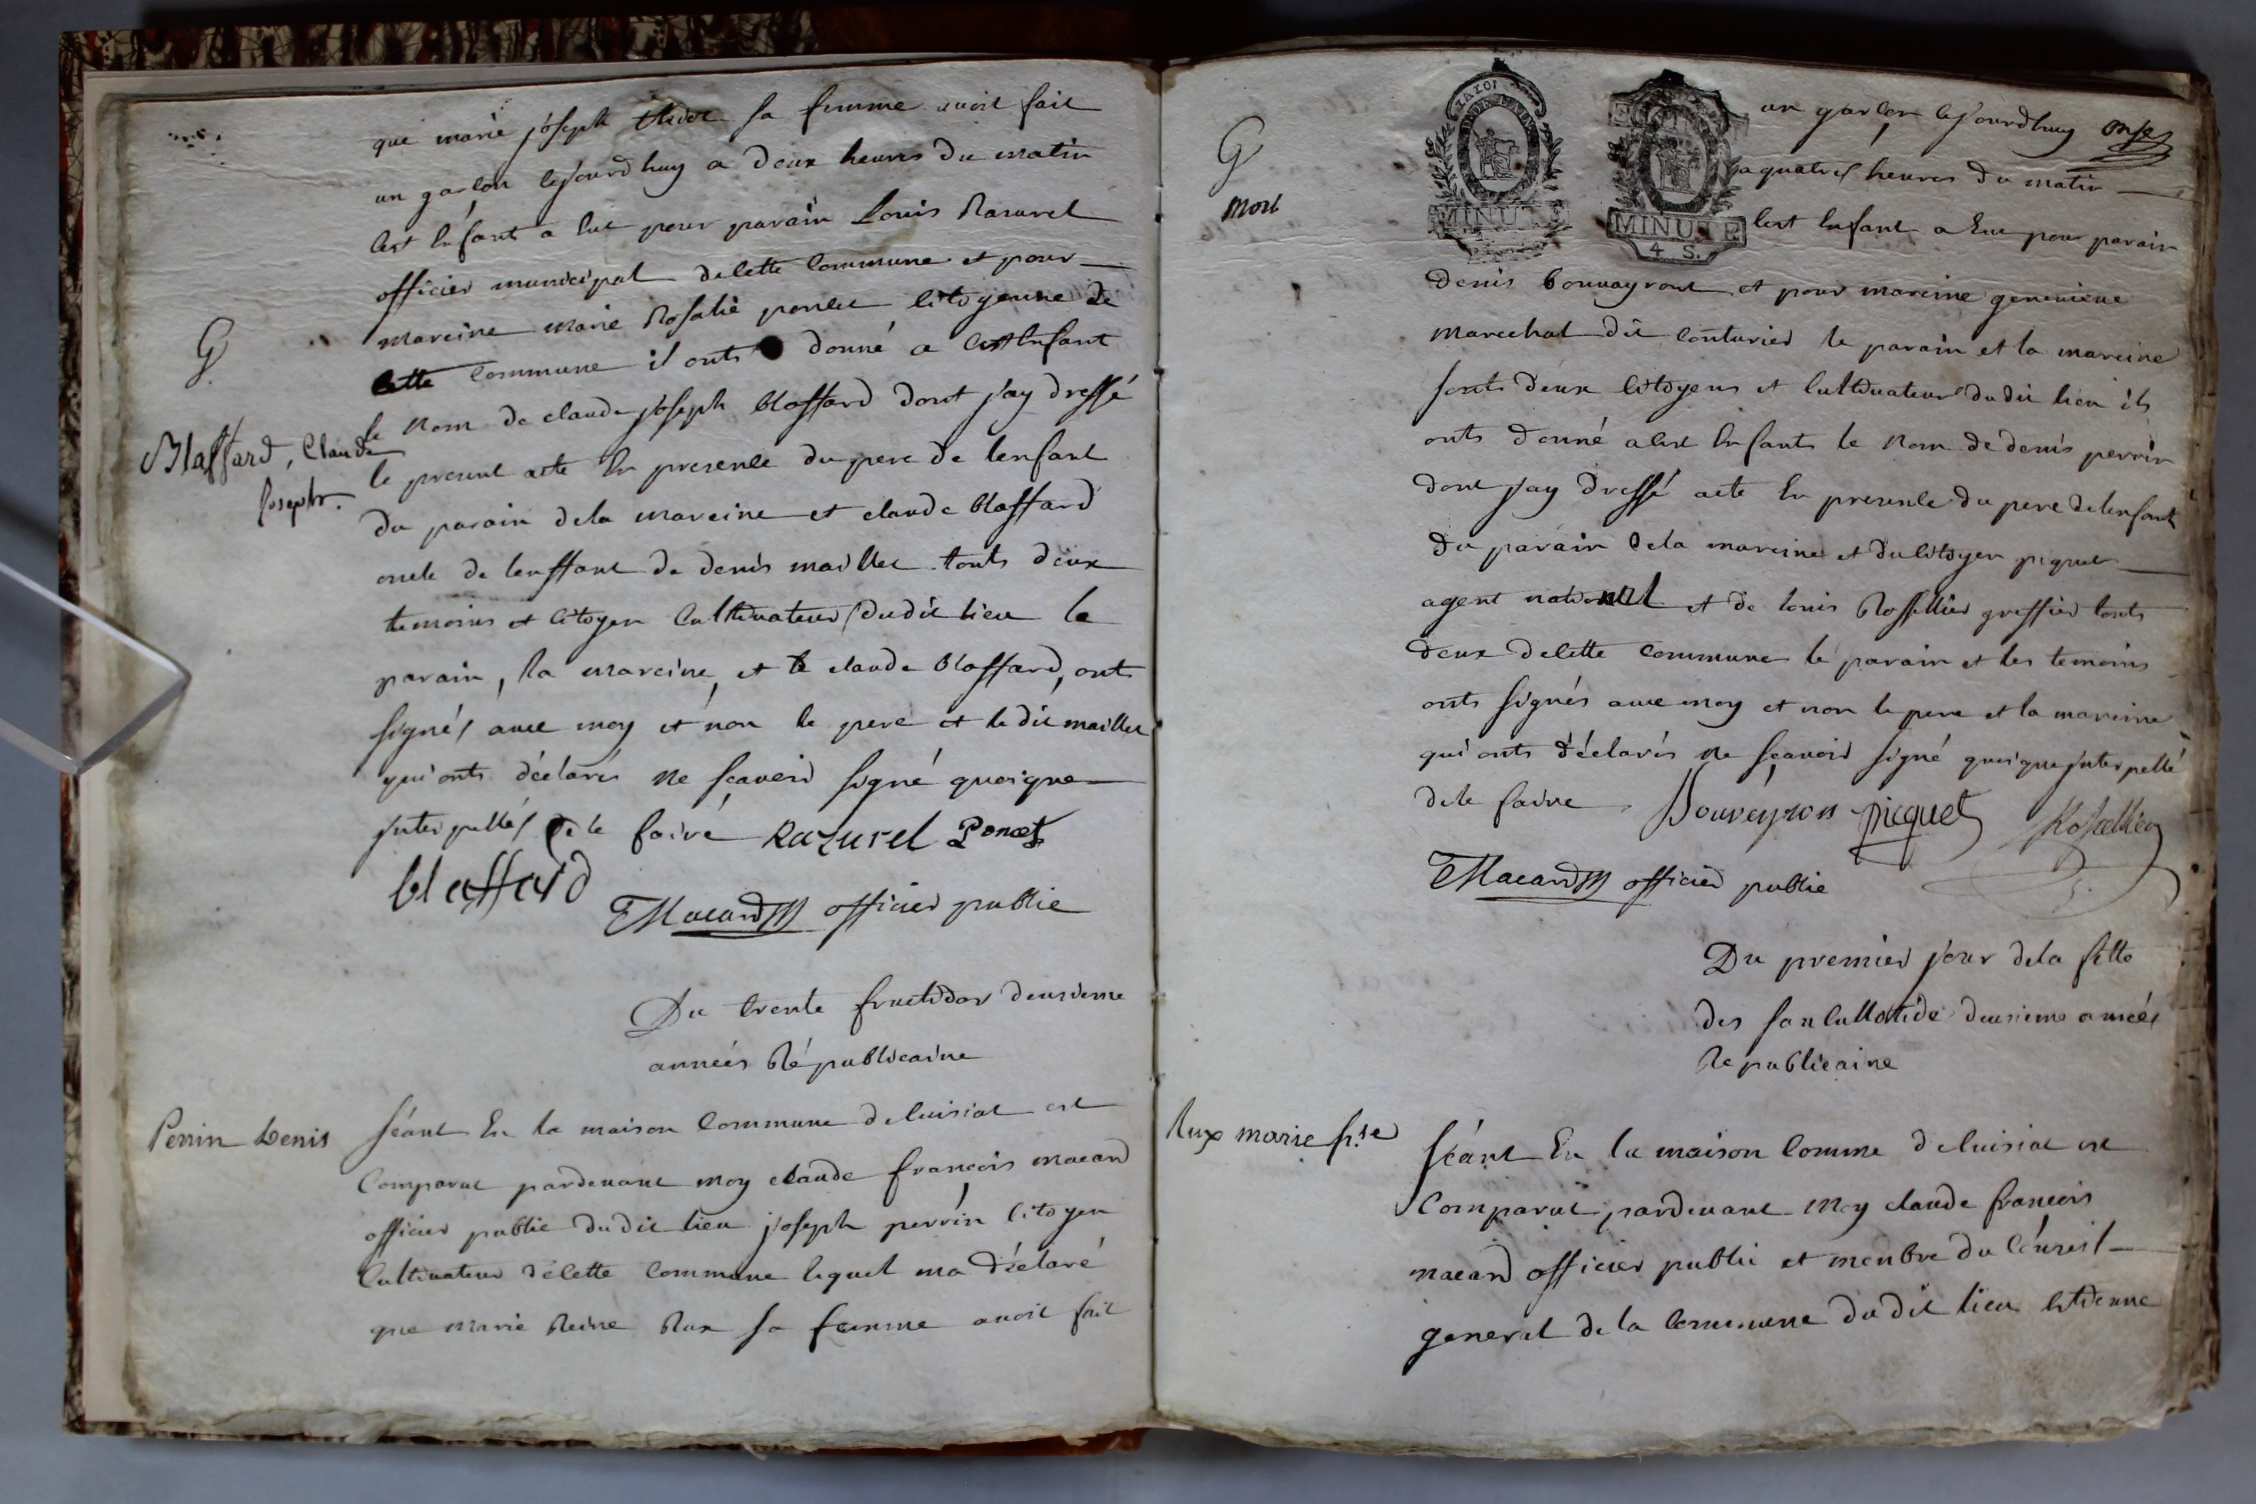 que marie joseph sa femme avoit fait
un garçon cejourdhuy a deux heures du matin
cest enfant a eut pour parain Louis Razurel
officier municipal de cette commune et pour
mareine marie Rosalie poncet citoyenne de
cette commune il onts donné a cest enfant
le nom de claude joseph blaffard dont j'ay dressé
le present acte en presence du pere de lenfant
du parain dela mareine et claude blaffard
oncle de lenffant de denis maillet touts deux
temoins et citoyen cultivateur dudit lieu le
parain, la mareine, et le claude blaffard, onts
signés avec moy et non le pere et le dit maillet
qui onts déclarés ne sçavoir signé quoique
interpellés de le faire Razurel Poncet
blaffard
Macard officier public
G
Blaffard, Claude
Joseph.
Du trente fructidor deuxieme
années Républicaine
Perrin Denis
séant En la maison commune de cuisiat est
comparut pardevant moy claude francois macard
officier public dudit lieu joseph perrin citoyen
cultivateur de cette commune lequel ma déclaré
que marie Reine Rux sa femme avoit fait
G
Mort
MINUTE
MINUTE
4 S.
un garçon cejourdhuy
a quatres heures du matin
cest enfant a Eut pour parain
denis bouvayront et pour mareine genevieve
marechal dit couturier le parain et la mareine
sonts deux citoyens et cultivateur du dit lieu ils
onts donné a cest enfants le nom de denis perrin
dont j'ay dressé acte en presence du pere de lenfant
du parain dela mareine et du citoyen piquet
agent national et de louis Rossellier greffier touts
deux de cette commune le parain et les temoins
onts signés avec moy et non le pere et la mareine
qui onts déclarés ne sçavoir signé quoique interpellé
dele faire Bouveyron picquet Rossellier
Macard officier public
Du premier jour dela fette
des sanculotide deuxieme années
Republicaine
Rux marie fse
séant En la maison comme de cuisiat est
comparut pardevant moy claude francois
macard officier public et menbre du conseil
general de la commune du dit lieu Etienne